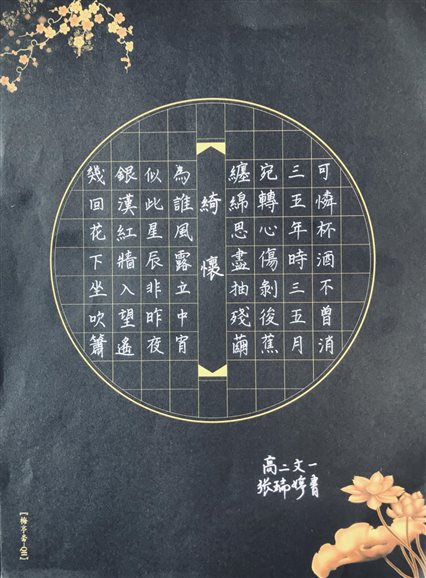 可憐杯酒不曾消
三五年時三五月
宛轉心傷剝後蕉
纏綿思盡抽殘繭
綺懷
為誰風露立中宵
似此星辰非昨夜
銀漢紅牆入望遙
幾回花下坐吹簫
高二文一
张瑞婷書